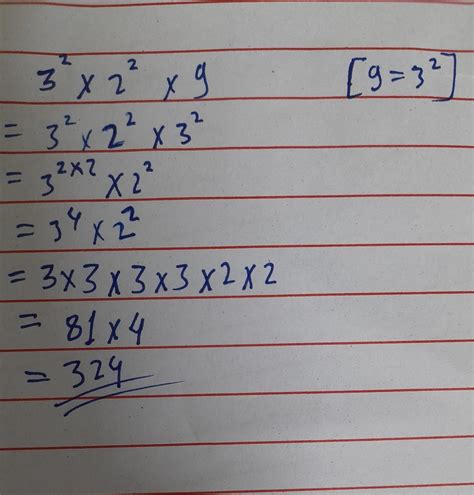 3² × 2² × 9 [9 = 3²]
= 3² × 2² × 3²
= 3²ˣ² × 2²
= 3⁴ × 2²
= 3 × 3 × 3 × 3 × 2 × 2
= 81 × 4
= 324